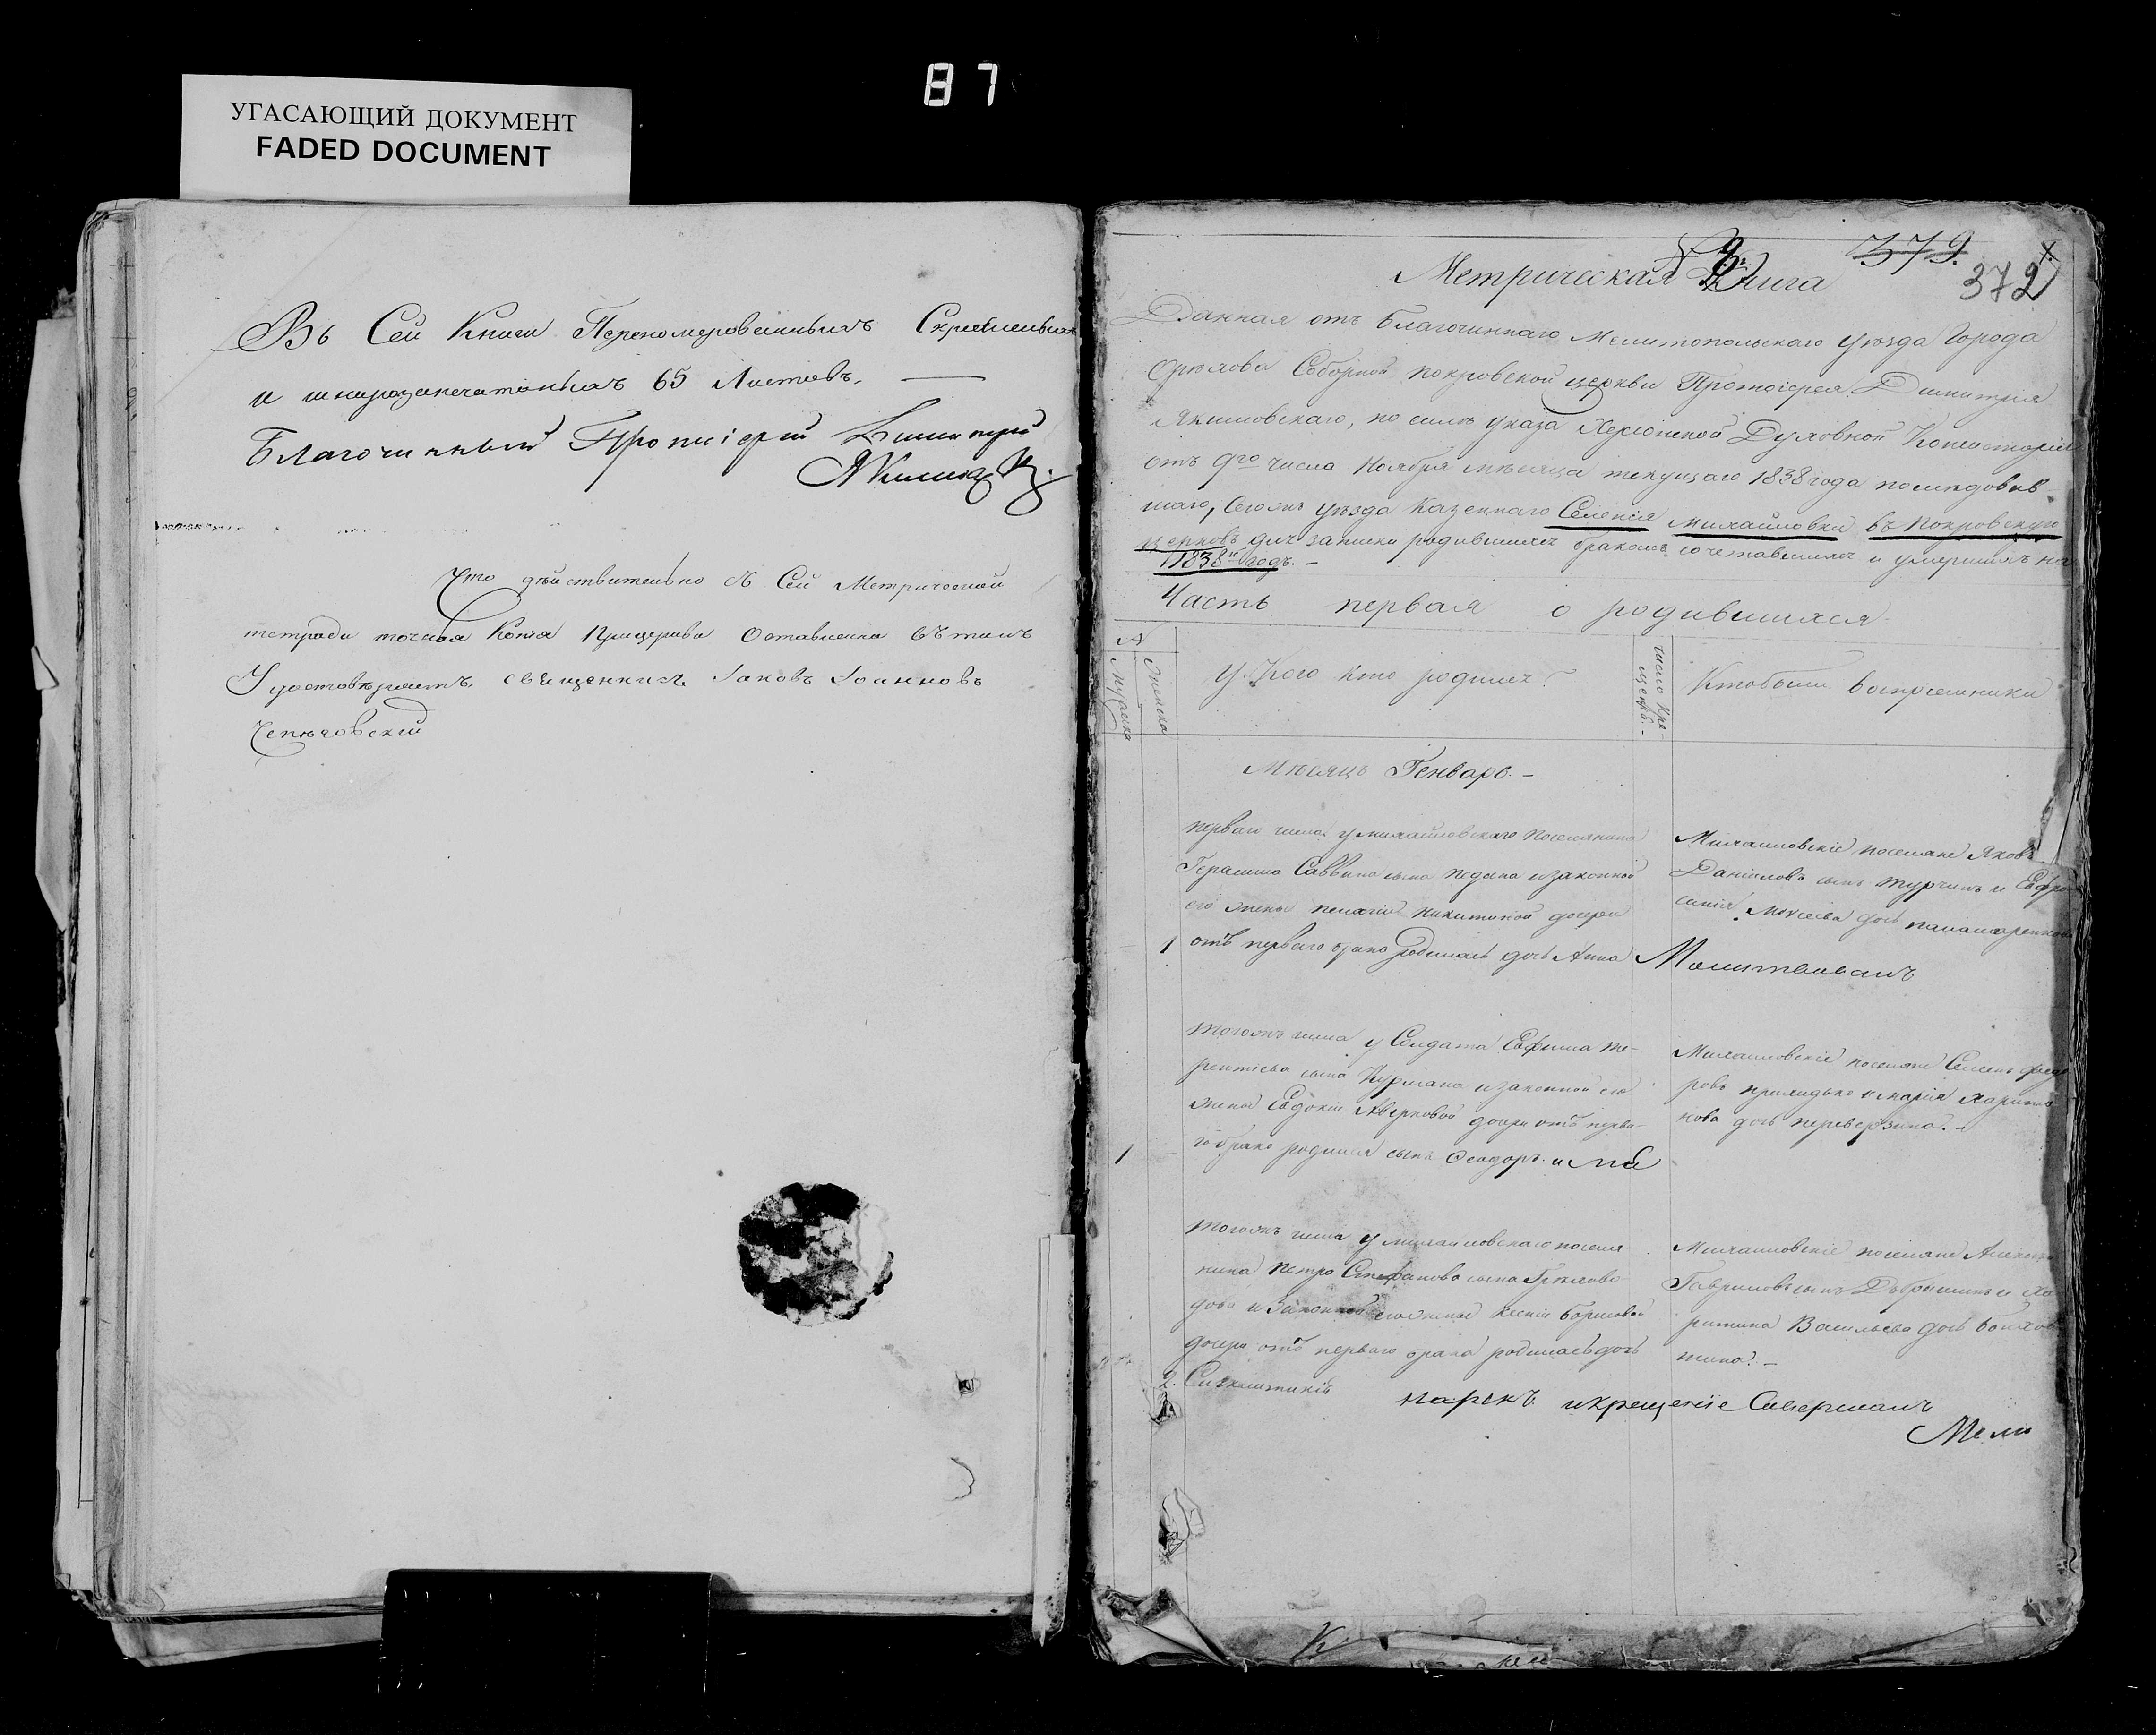 87
УГАСАЮЩИЙ ДОКУМЕНТ
FADED DOCUMENT
Въ Сей Книги Перепомерованныхъ Скрепленныхъ
и шнурозапечатанныхъ 65 Листовъ.
Благочинный Протоіерей Димитрій
Якимовскій
Что действительно съ Сей Метрической
тетради точная Копія Прицеркви Оставлена Въ томъ
Удостовѣряетъ, священникъ Іаковъ Іоанновъ
379.
372
Метрическая Книга
Данная отъ Благочиннаго Мелитопольскаго уѣзда Города
Орѣхова Соборной покровской церкви Протоіерея Димитрия
Якимовскаго, по силѣ указа Херсонской Духовной Консисторіи
отъ 9го числа Ноября мѣсяца текущаго 1838 года последовав-
шаго, Сегожъ уѣзда Казеннаго Селенія михайловки въ покровскую
церковъ для записки родившихся бракомъ сочетавшихся и умершихъ на
1838й годъ. -
Часть первая о родившихся
№
Мужска
Женска
У Кого кто родился?
число кре-
щенія.
Ктобыли воспріемники
Мѣсяцъ Генварь. -
перваго числа у михайловскаго поселянина
Герасима Саввина сына и законной
его жены пелагіи никитиной дочери
1 отъ перваго брака родилась дочь Анна Молитвовалъ
Михаиловскіе поселяне Яковъ
Даніловъ сынъ турчинъ и Евфро
синія Моисеева дочь
тогожъ числа у Солдата Евфима те-
рентіева сына Курмана и законной его
жены Евдокіи Аверковой дочери отъ перва-
1 го брака родился сынъ Феодоръ и
Михаиловскіе поселяне Семенъ федо
ровъ приходько и марія Харито
нова дочь переверзина. -
тогожъ числа у михаиловскаго поселя-
нина петра Стефанова сына
и Законной его жены Ксеніи борисовой
дочери отъ перваго брака родилась дочь
2. Синклитикія
Михаиловскіе поселяне Алексей
Гавриловъ сынъ Добрышинъ и Ха
ритина Васильева дочь
нарекъ и крещеніе Совершалъ